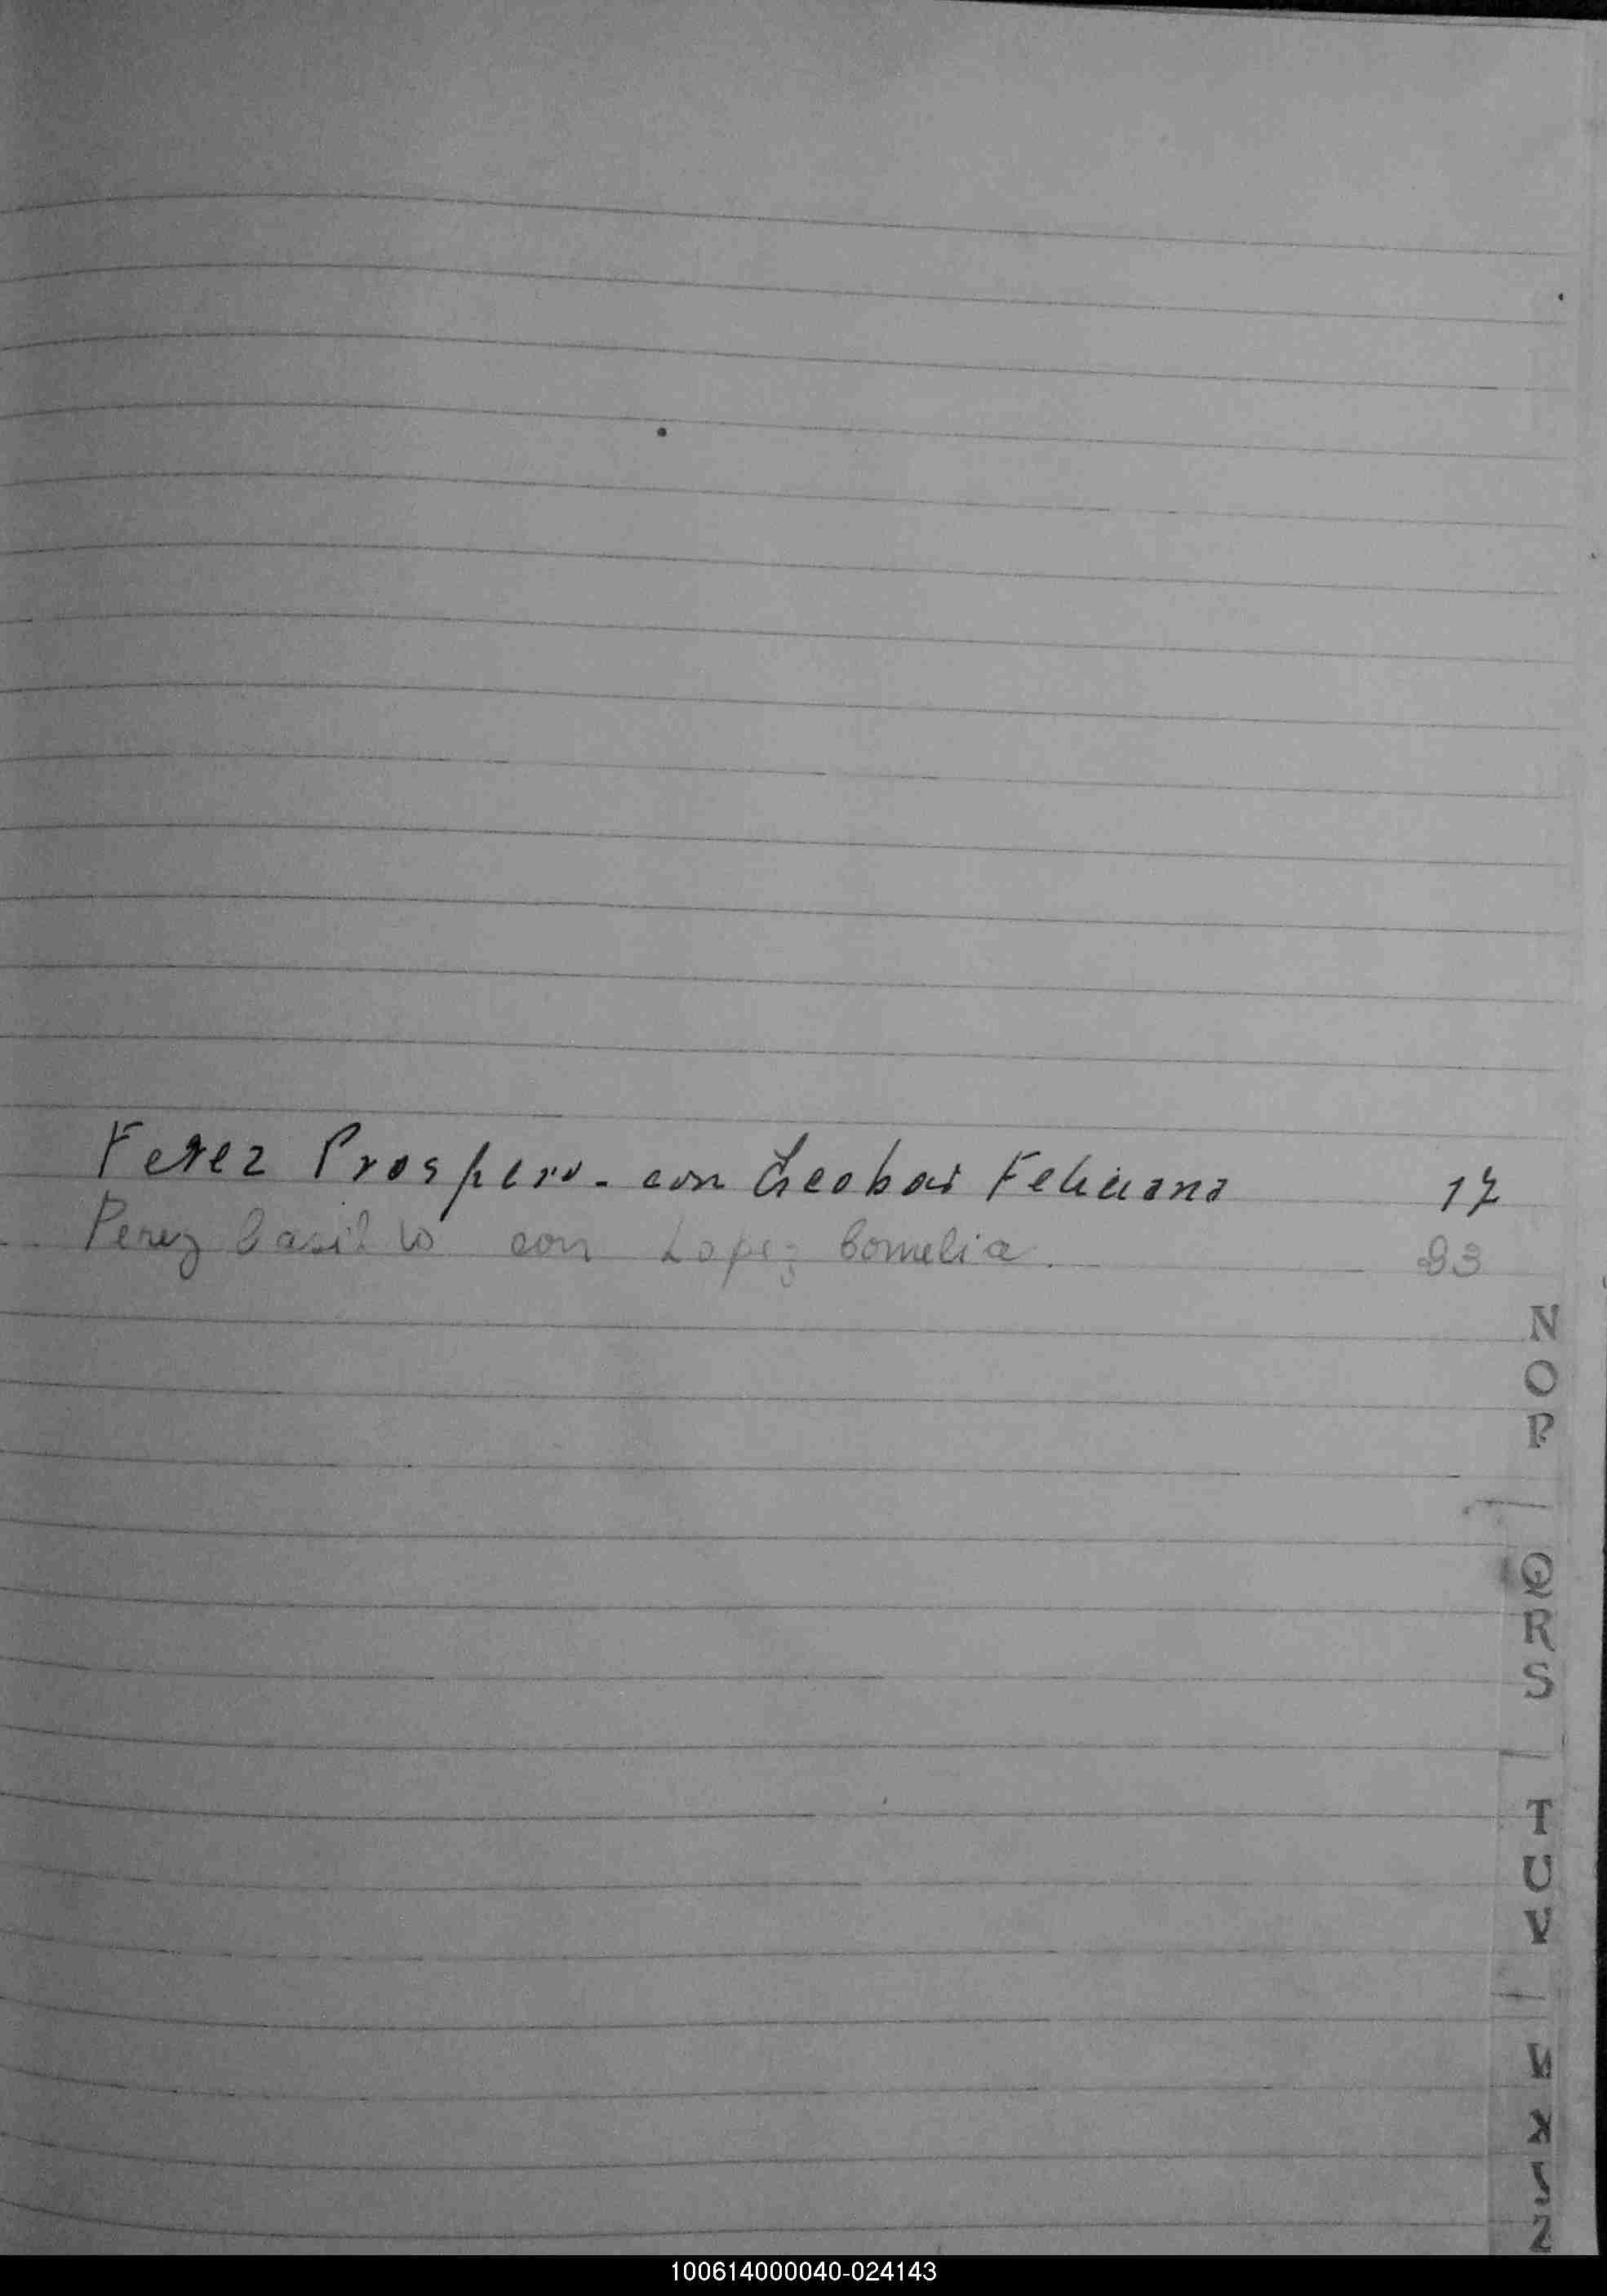 Perez Prospero - con Escobar Feliciana 17
Perez Basilio con Lopez Cornelia. 93
N
O
P
Q
R
S
T
U
V
X
Z
100614000040-024143